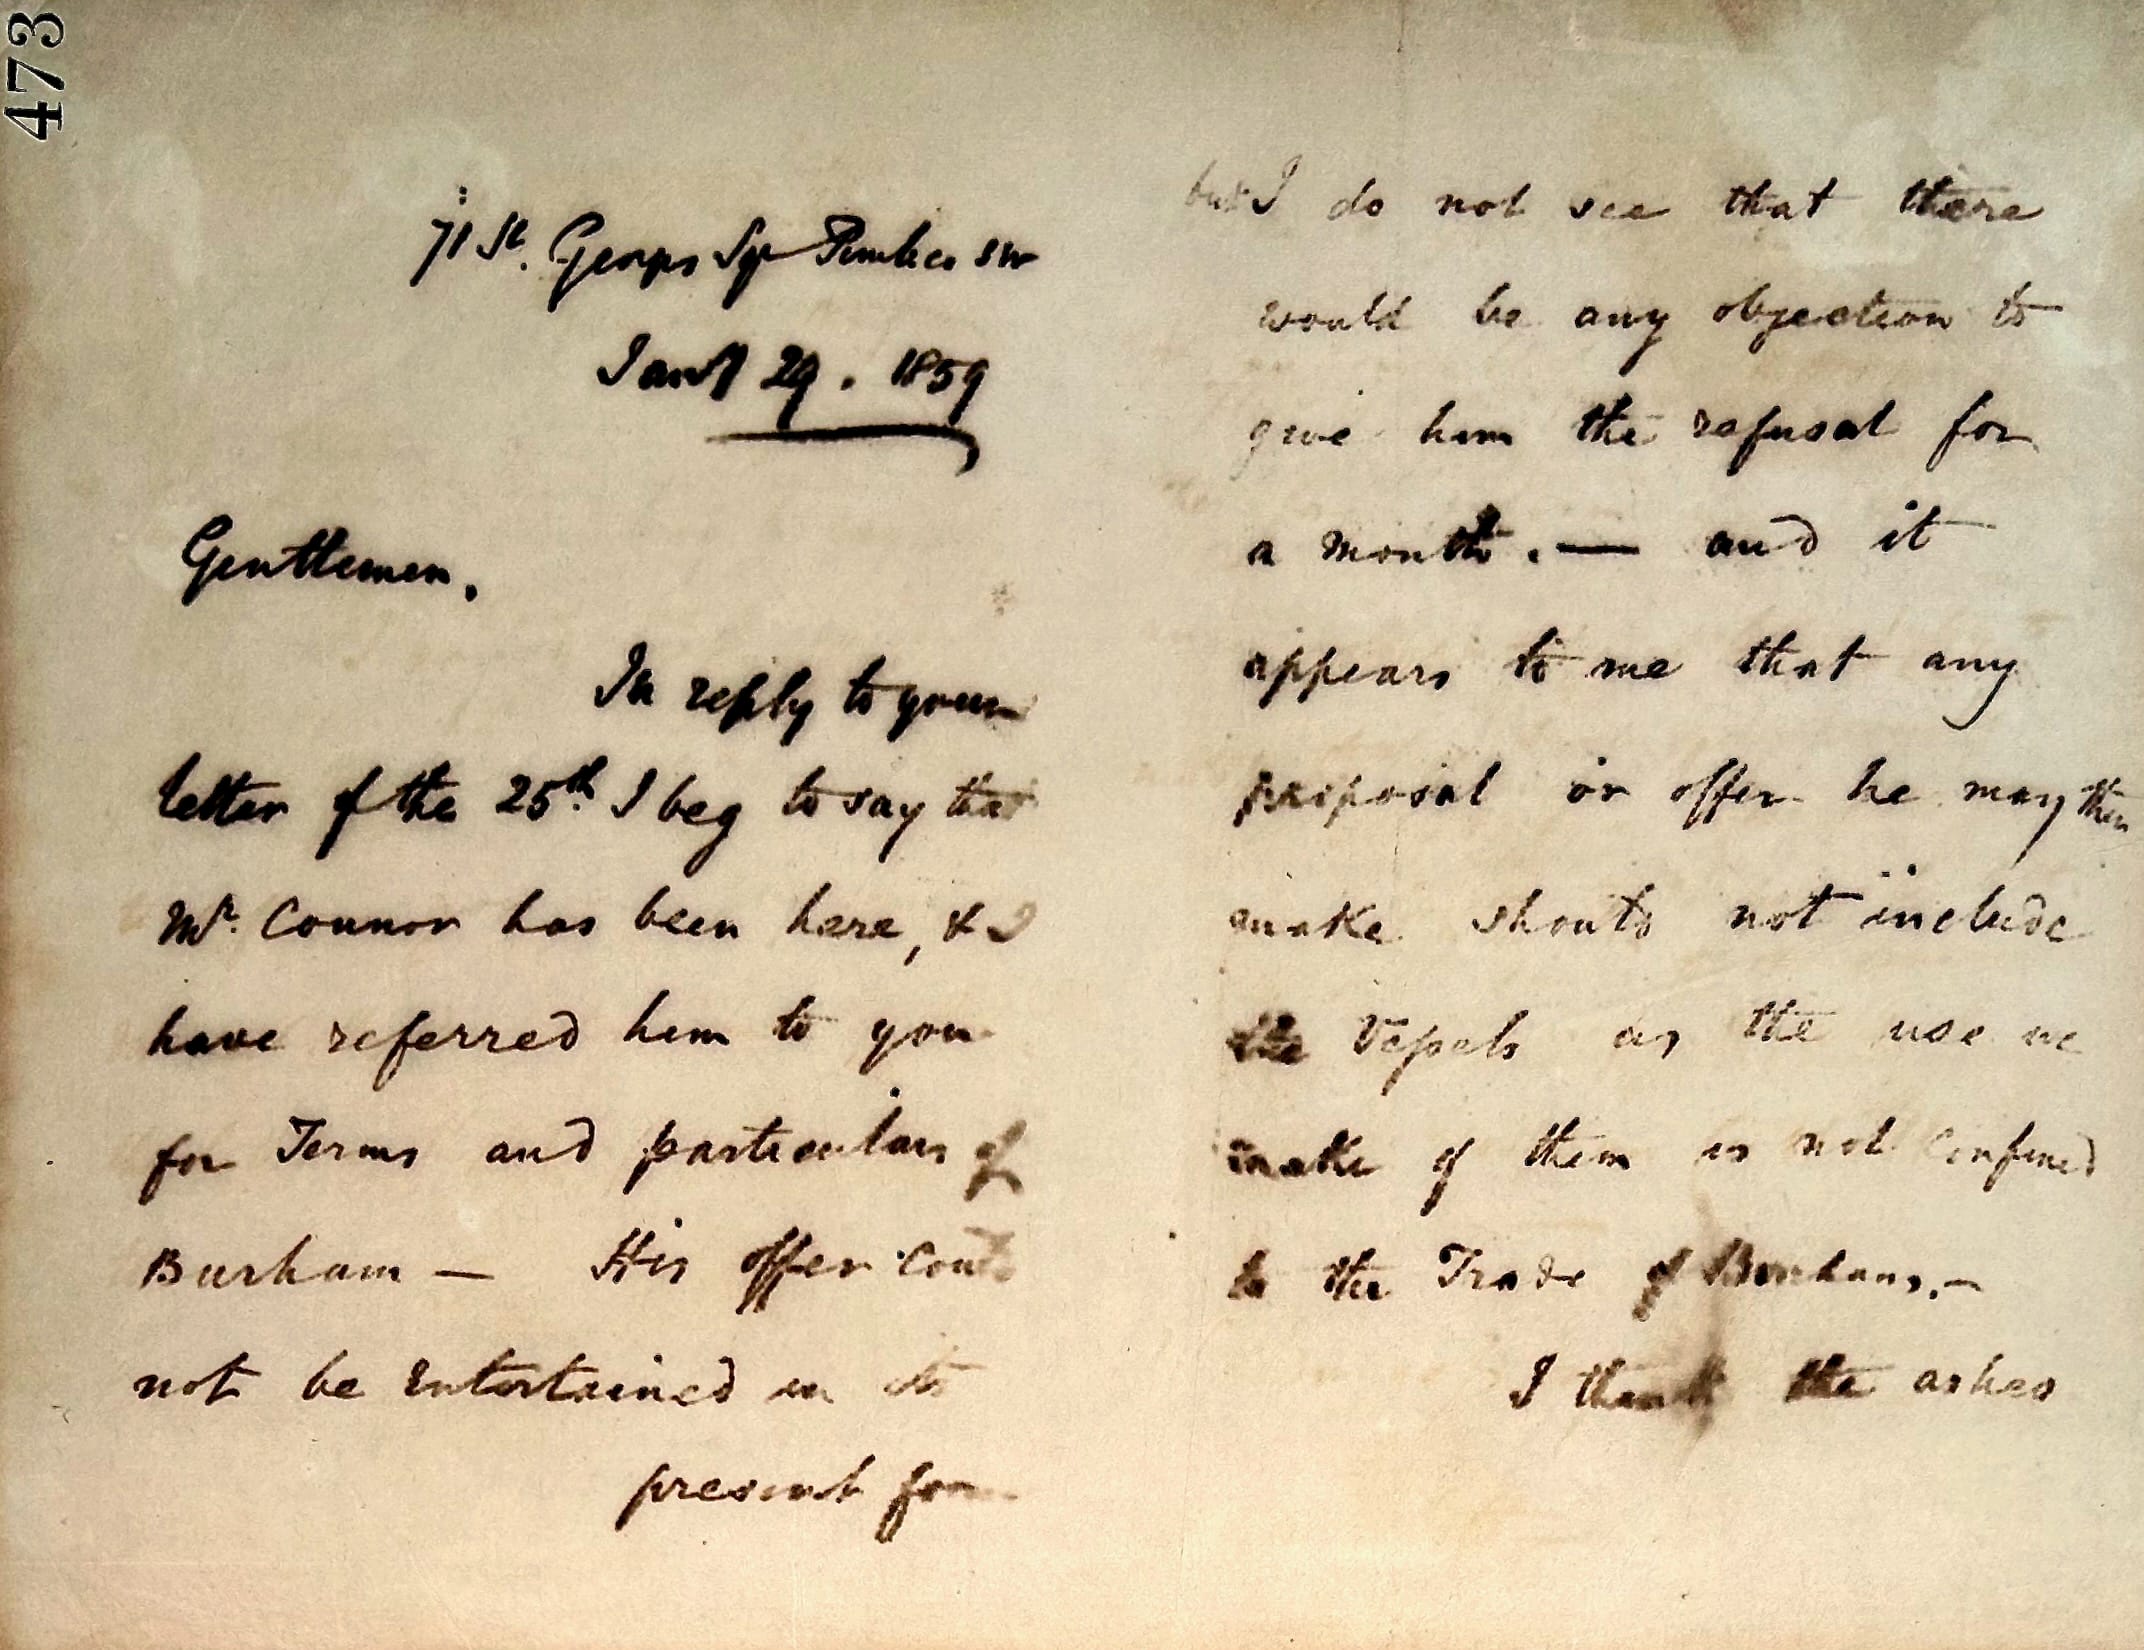 473
71 St. Georges Sqr Pimlico SW
Jany 29. 1859
Gentlemen.
In reply to your
letter of the 25th. I beg to say that
Mr. Connor has been here, & I
have referred him to you
for Terms and particulars of
Burham — His offer could
not be entertained in its
present form
but I do not see that there
would be any objection to
give him the refusal for
a month. — and it
appears to me that any
proposal or offer he may then
make should not include
the Vessels as the use we
make of them is not confined
to the Trade of Burham. —
I think the ashes